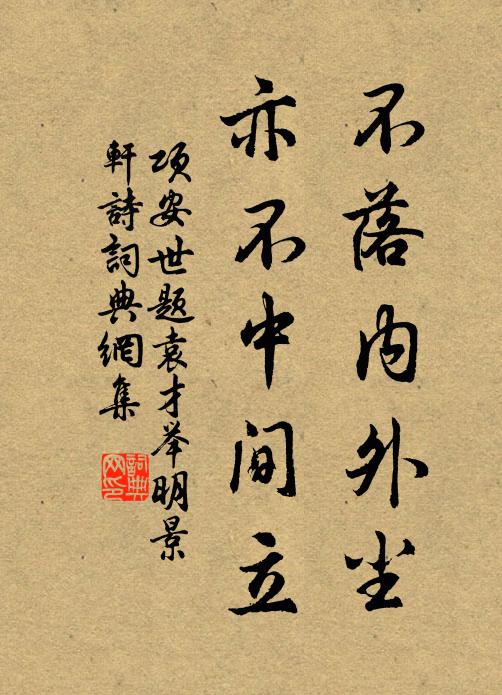 不落内外尘
亦不中间立
项安世题袁才举明景
軒詩詞典網集
詞典
网印